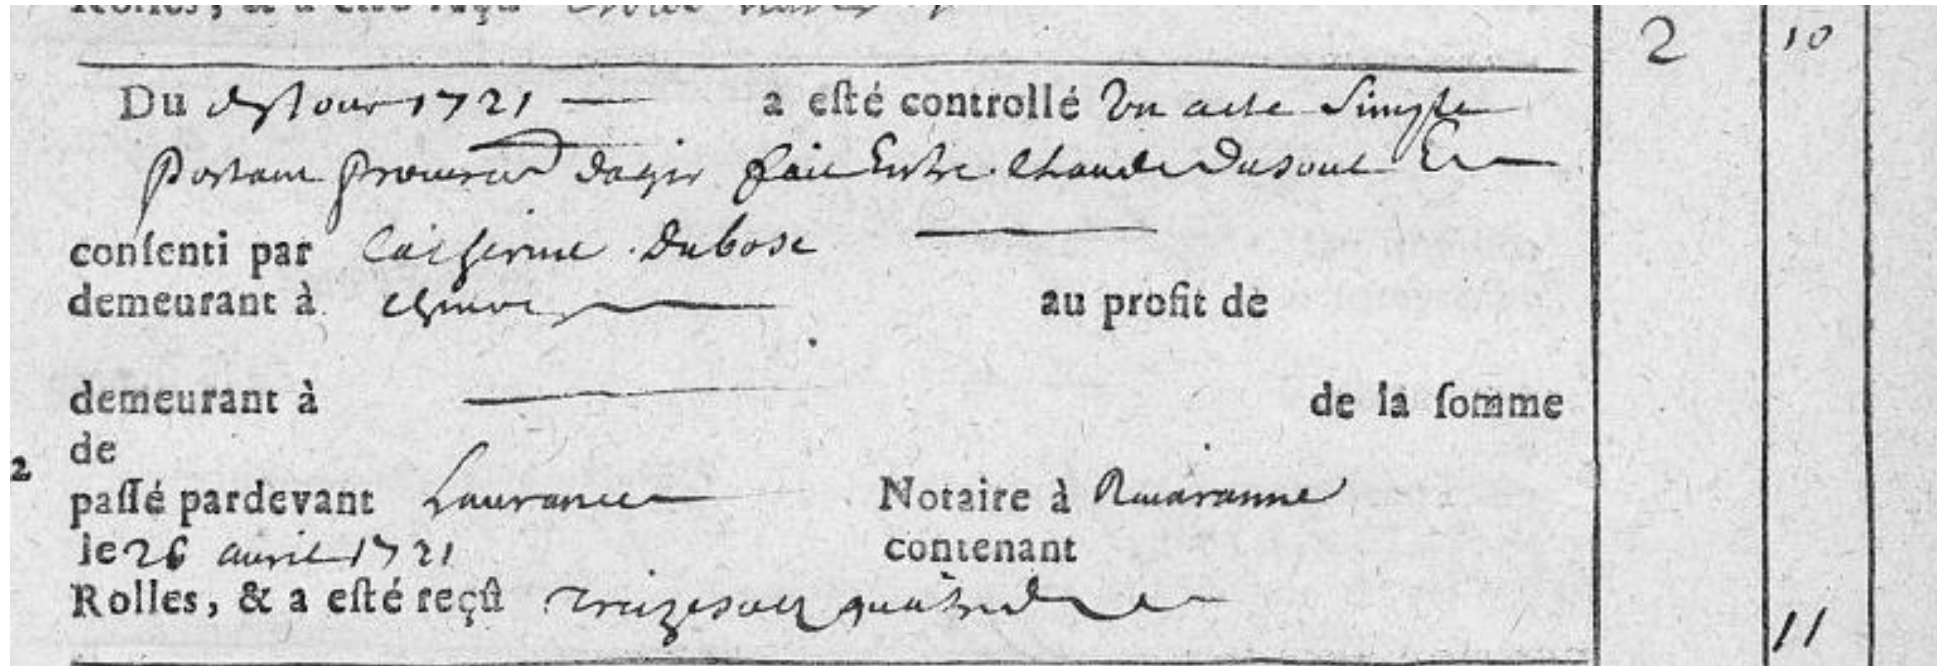 Rolles, & a esté reçû
2 10
Du dt Jour 1721 — a esté controllé Un acte Simple
Portant procura on dagir fait Entre Claude Dusout Et
consenti par Catherine Dubosc
demeurant à au profit de
demeurant à de la somme
de
2
passé pardevant Laurance Notaire à
le 26 auril 1721 contenant
Rolles, & a esté reçû treize sols quatre d
11